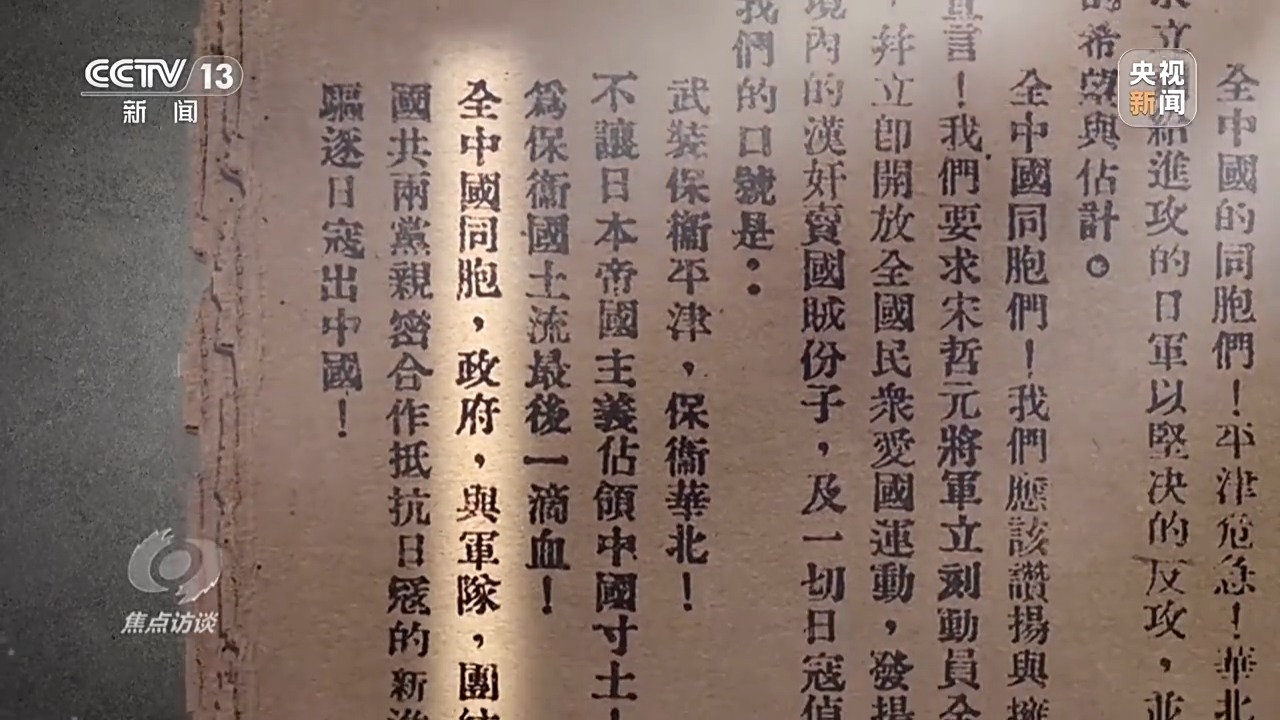 CCTV 13
新闻
央视
新闻
全中國的同胞們！平津危急！華北
立給進攻的日軍以堅决的反攻，並
的希望與佔計。
全中國同胞們！我們應該讚揚與擁
宣言！我們要求宋哲元將軍立刻動員全
，并立卽開放全國民衆愛國運動，發揚
境內的漢奸賣國賊份子，及一切日寇偵
我們的口號是：
武裝保衞平津，保衞華北！
不讓日本帝國主義佔領中國寸土！
爲保衞國土流最後一滴血！
全中國同胞，政府，與軍隊，團結
國共兩黨親密合作抵抗日寇的新進
驅逐日寇出中國！
焦点访谈